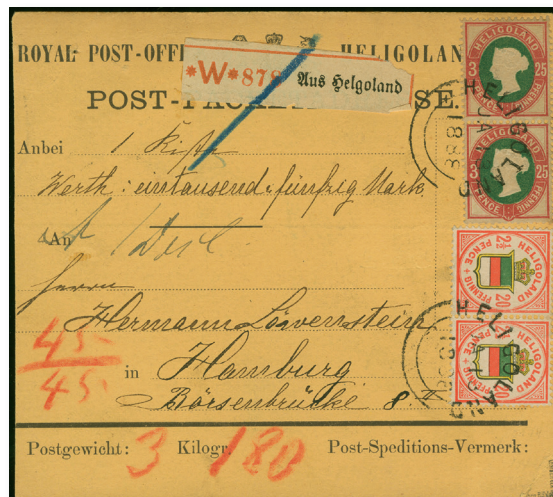 ROYAL POST-OFFI HELIGOLAN
*W* 878 Aus Helgoland
POST-PACKE SE.
Anbei 1 Kiste
Werth: eintausend fünfzig Mark
An
Herrn
Hermann Löwenstein
in Hamburg
Börsenbrücke 8
45
45
Postgewicht: 3 Kilogr. 180 Post-Speditions-Vermerk:
HELIGOLAND
3 25
PENCE PFENNIG
HELIGOLAND
3 25
PENCE PFENNIG
HELIGOLAND
2½ 20
PENCE PFENNIG
HELIGOLAND
20
HELIGOLAND
1888
HELIGOLAND